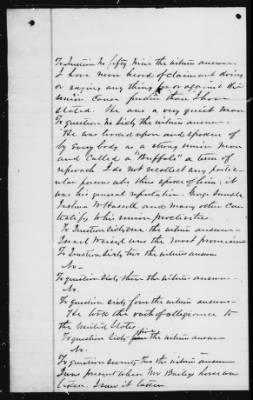 To Question No fifty nine the witness answers
I have never heard of claimant doing
or saying any thing for or against the
union cause further than I have
stated. He was a very quiet man
To question No sixty the witness answers
He was looked upon and spoken of
by Every body as a strong union man
and Called a "Buffalo" a term of
reproach. I do not recollect any partic-
ular persons who thus spoke of him, it
was his general reputation.
Joshua W and many other can
testify to his union proclivities
To Question sixty one the witness answers
Israel was the most prominent
To Question sixty two the witness answers
No.
To question sixty three the witness answers
No.
To question sixty four the witness answers
He took the oath of allegiance to
the United States
To question sixty the witness answers
No.
To question seventy two the witness answers
I was present when Mr Burbage was
taken. I saw it taken